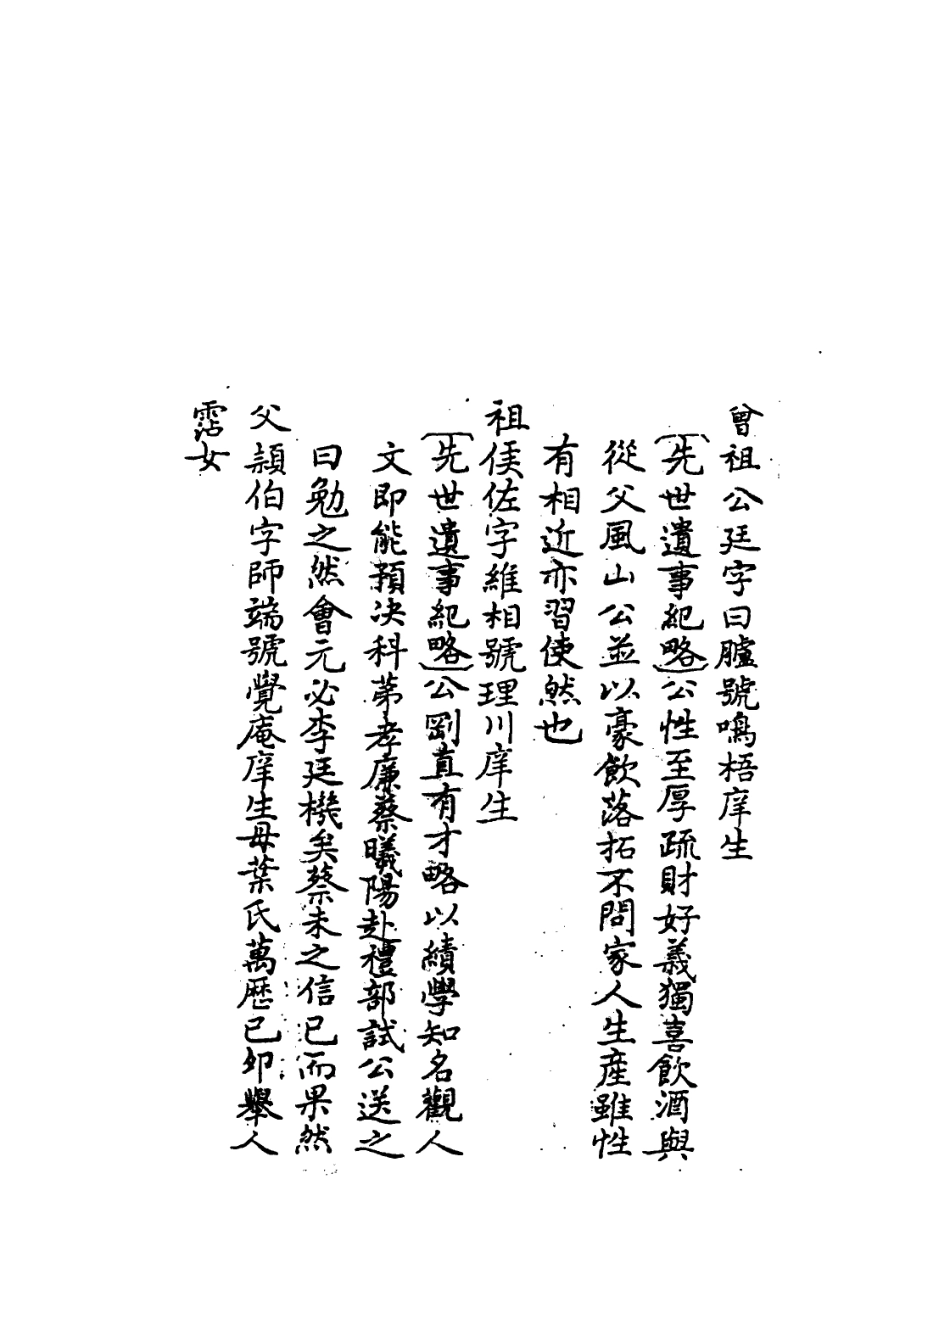 曾祖公廷字曰臚號鳴梧庠生
〔先世遺事紀略〕公性至厚疏財好義獨喜飲酒與
從父風山公並以豪飲落拓不問家人生産雖性
有相近亦習使然也
祖侯佐字維相號理川庠生
〔先世遺事紀略〕公剛直有才略以績學知名觀人
文即能預决科第孝廉蔡曦陽赴禮部試公送之
曰勉之然會元必李廷機矣蔡未之信已而果然
父頴伯字師端號覺庵庠生母葉氏萬歴已卯舉人
霑女